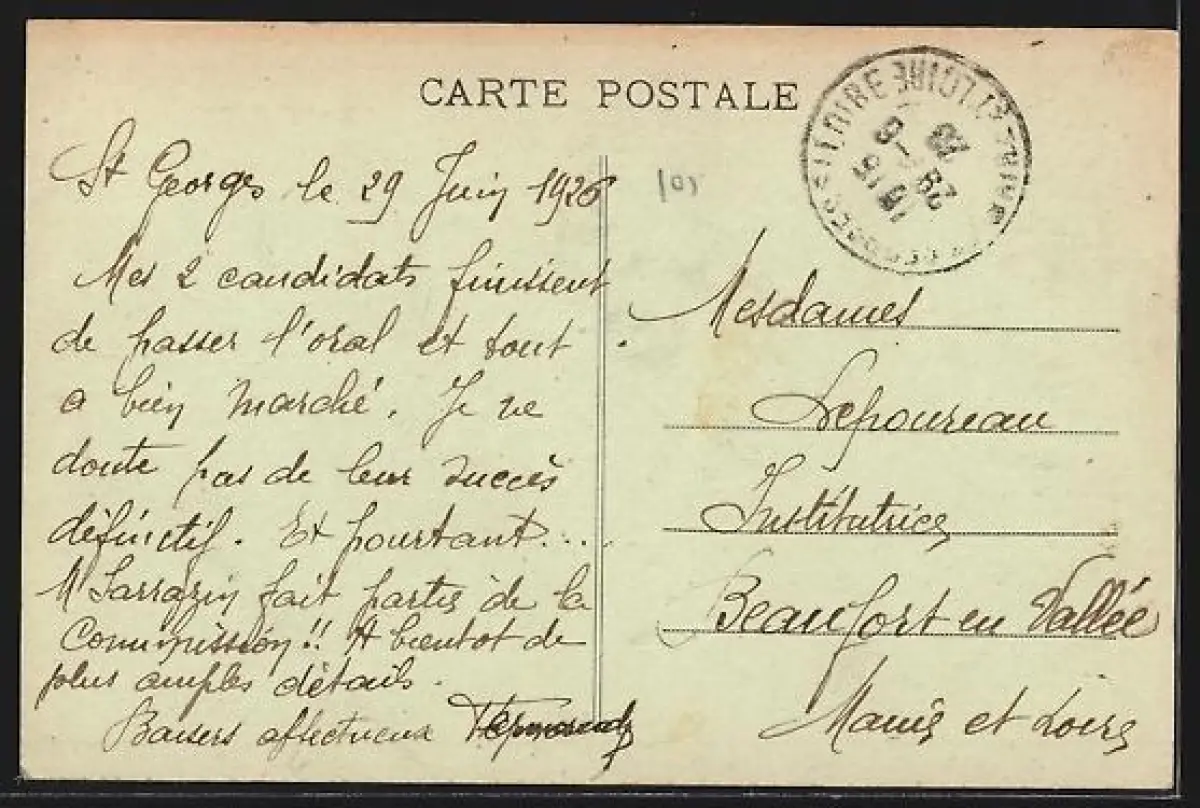 CARTE POSTALE
St Georges le 29 Juin 1926
Mes 2 candidats finissent
de passer l'oral et tout
a bien marché. Je ne
doute pas de leur succès
définitif. Et pourtant...
Mr Sarrazin fait partie de la
Commission!! A bientot de
plus amples détails.
Baisers affectueux
Mesdames
Lepoureau
Institutrices
Beaufort en Vallée
Maine et Loire
LOIRE
15 15
29 - 6
26